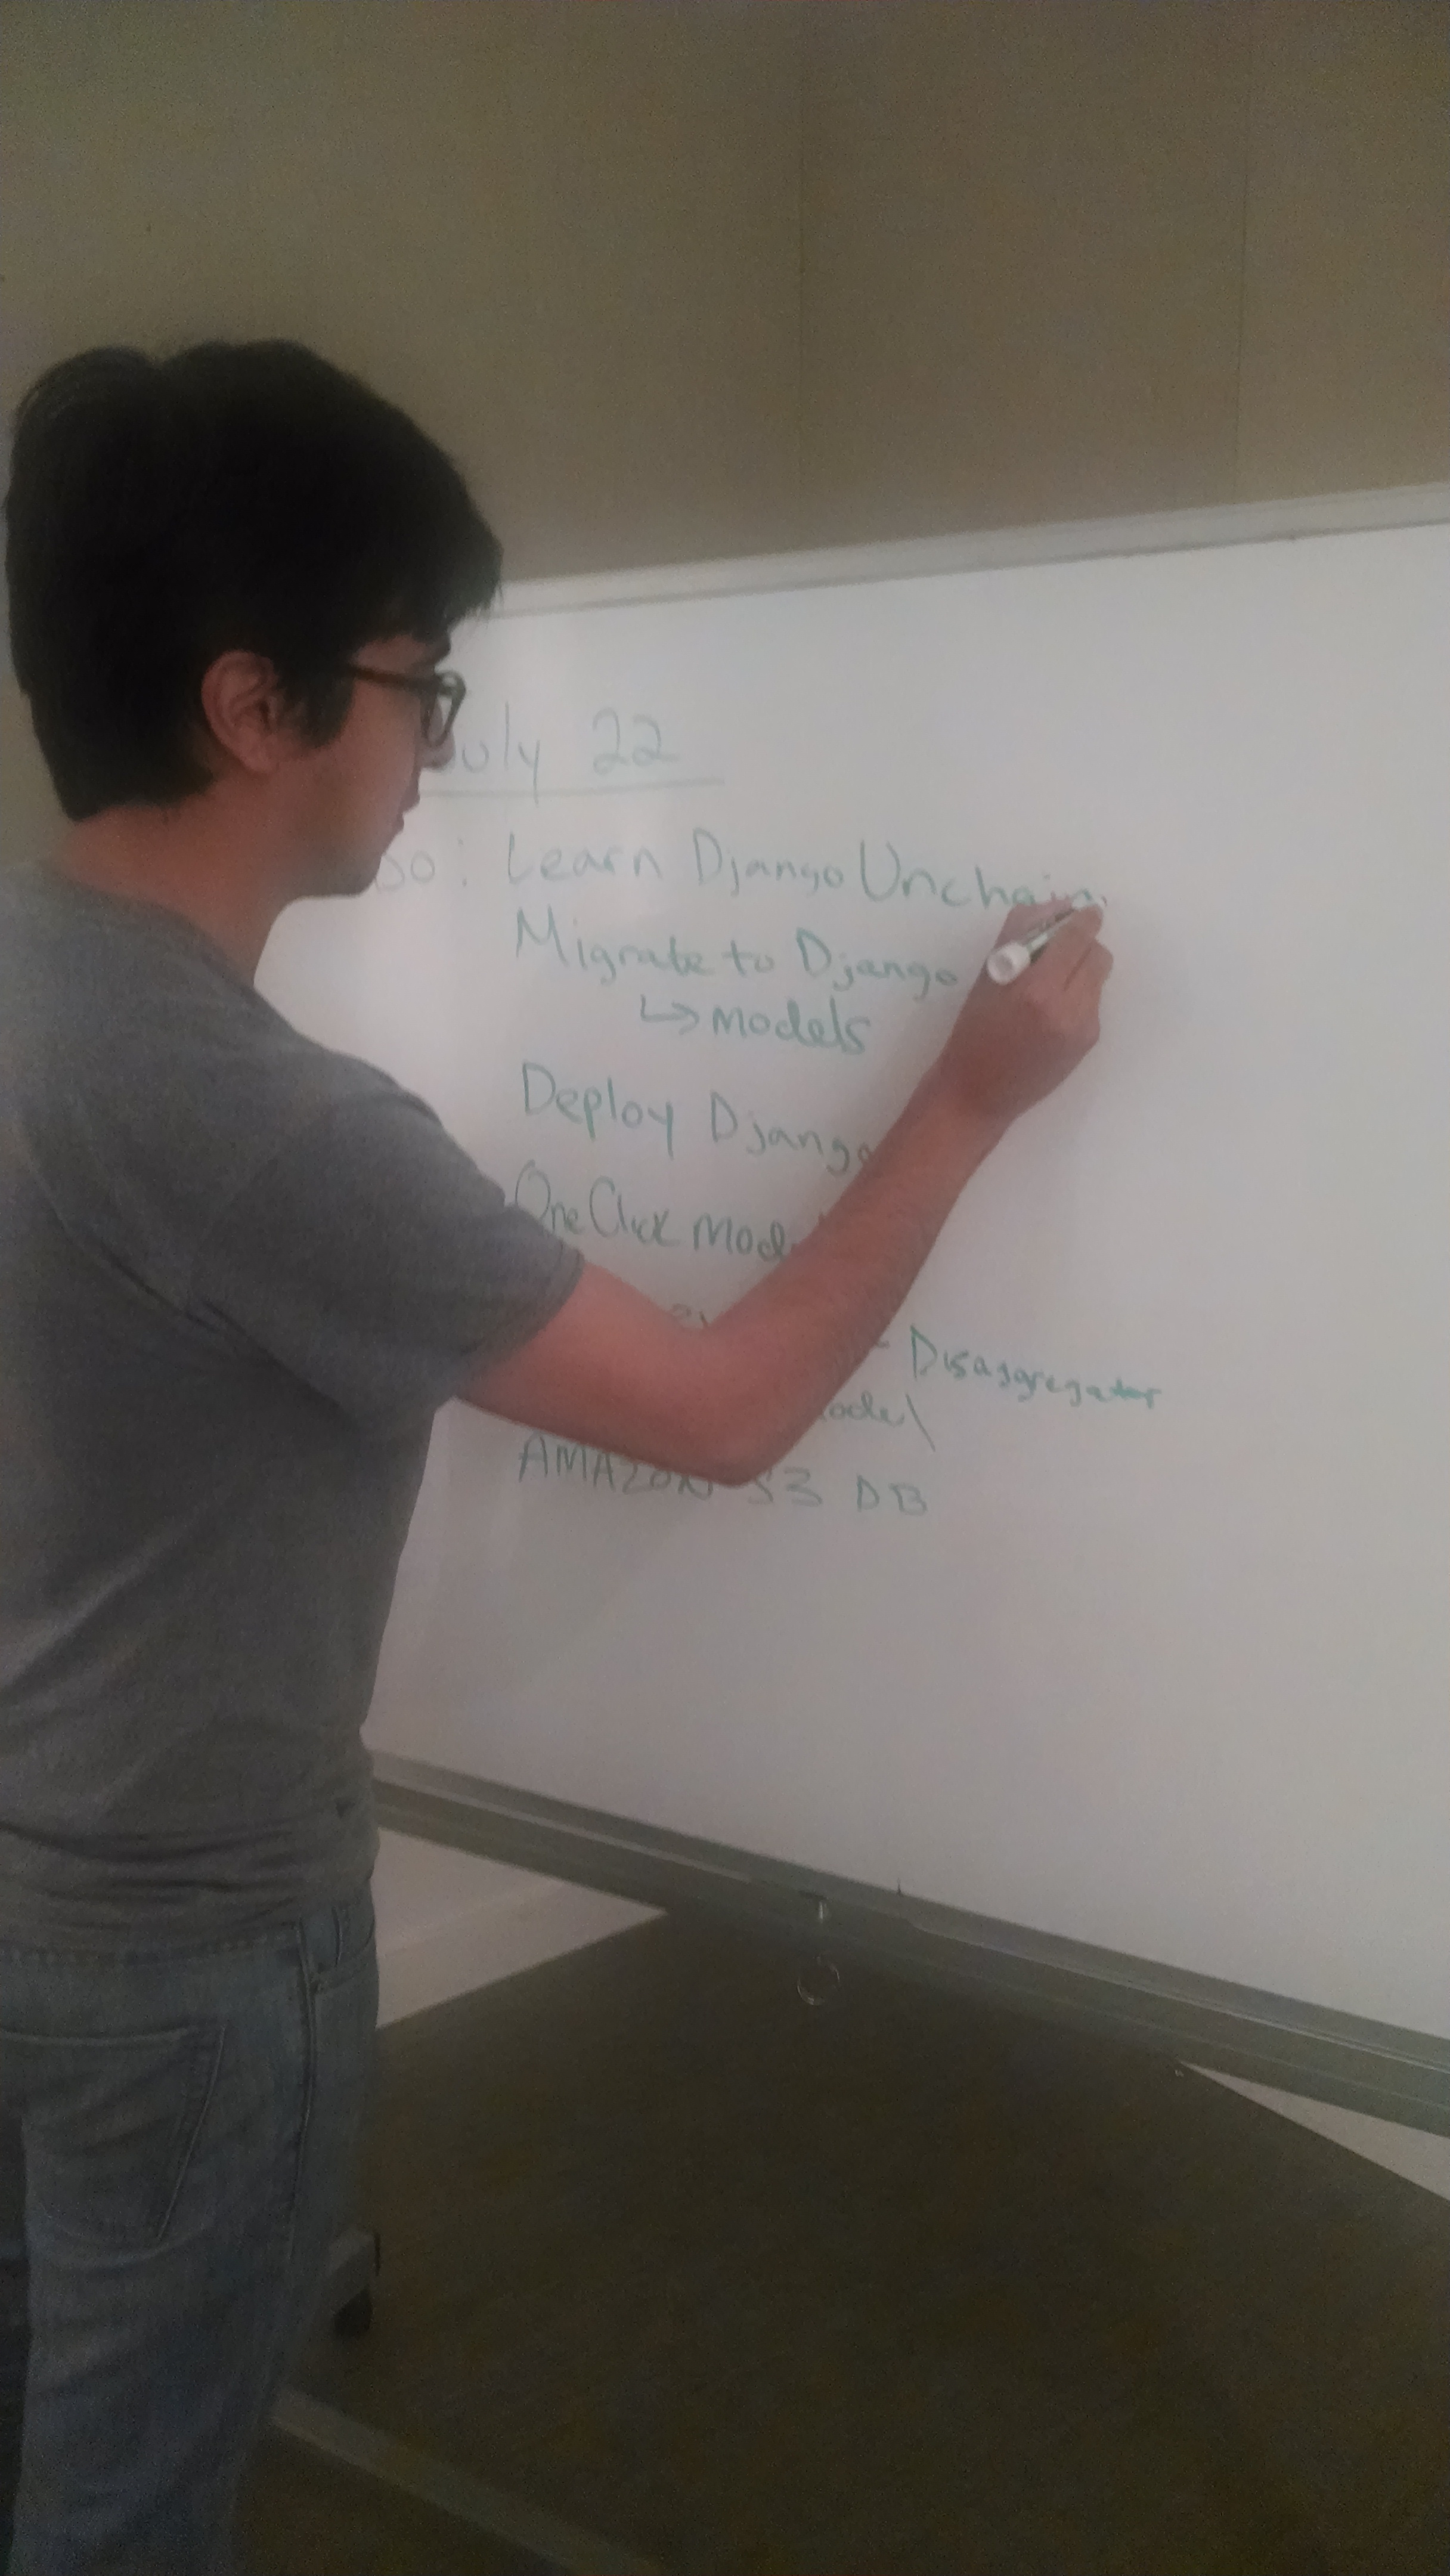 July 22
Do: Learn Django Unchain
Migrate to Django
↳ models
Deploy Django
One Click Mod
Disaggregator
odel
AMAZON S3 DB